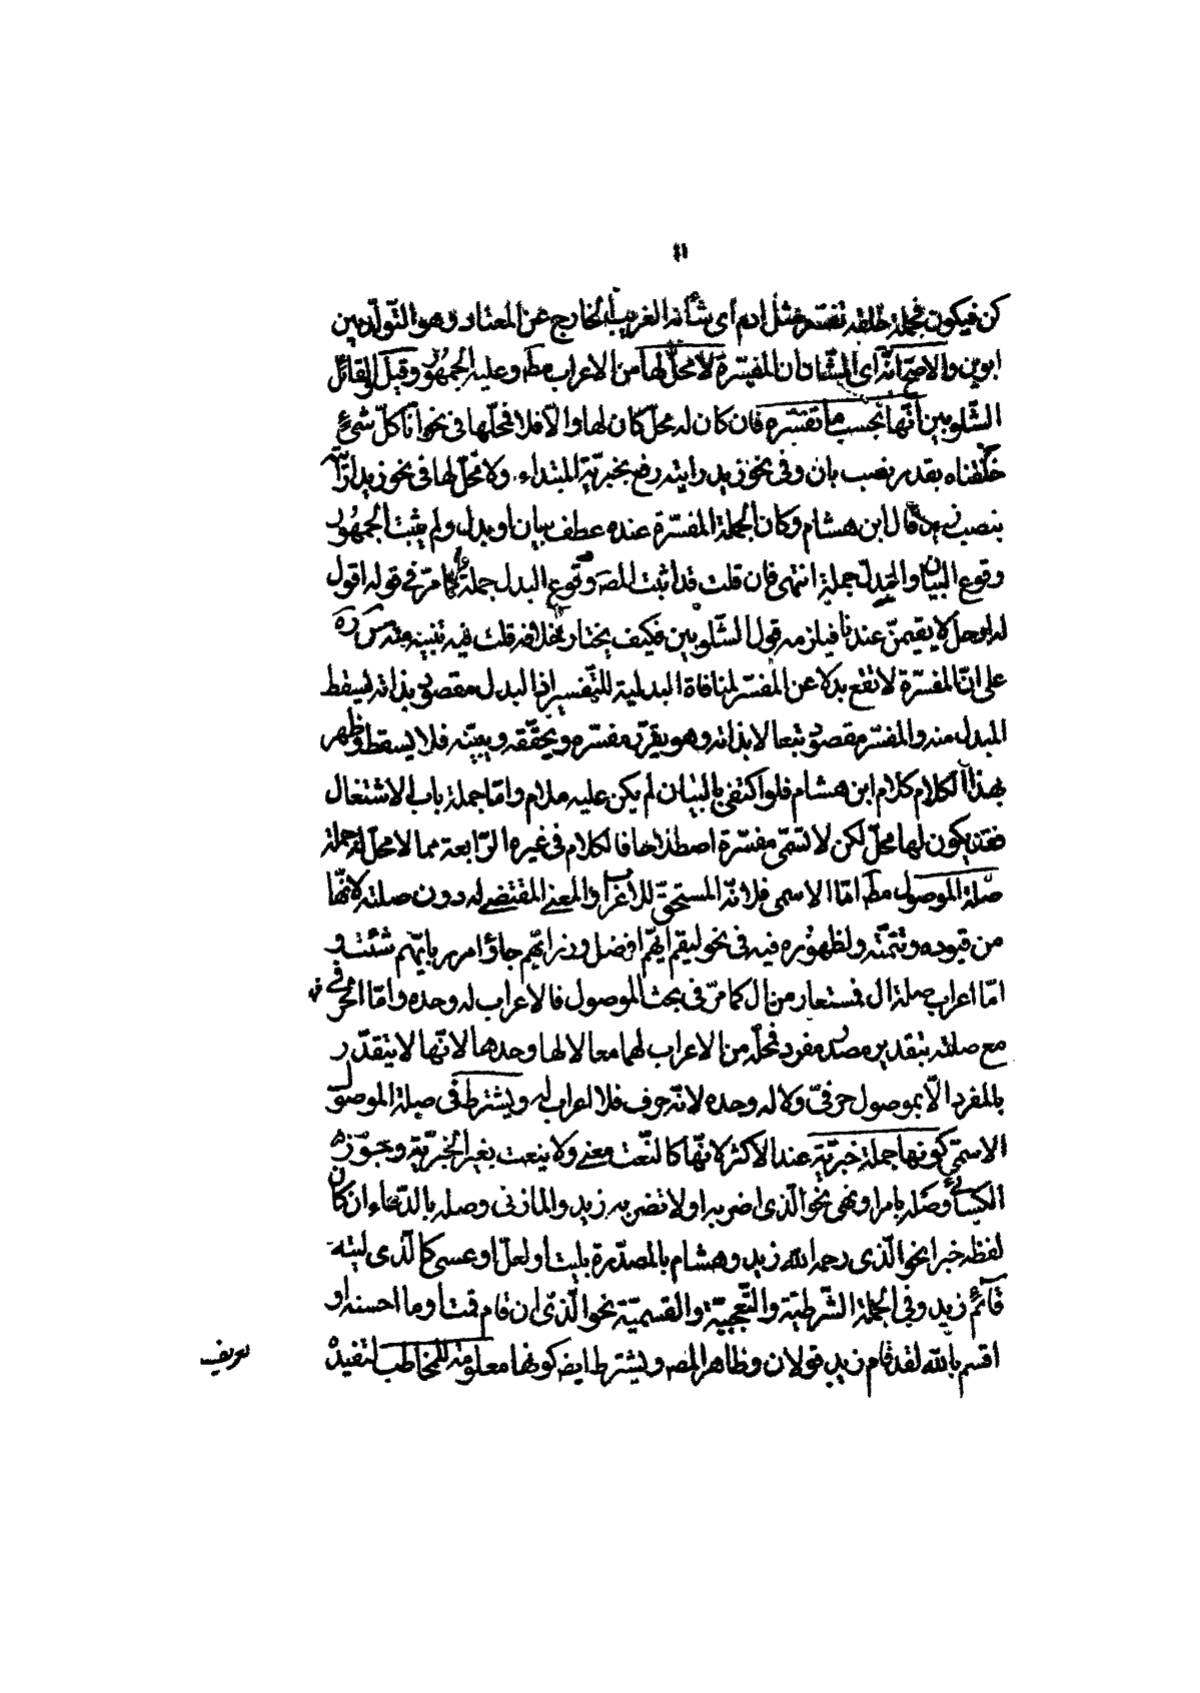 كن فيكون فجملة خلقه تفسير مثل ادم اى شأنه الغريب الخارج عن المعتاد وهو التّولّد بين
ابوين والاصحّ انّه اى الشّان ان المفسّرة لا محلّ لها من الاعراب مط وعليه الجمهور وقيل القائل
الشّلوبين انّها بحسب ما تفسّره فان كان له محلّ كان لها والّا فلا فمحلّها فى نحو انّا كلّ شئ
خلقناه بقدر نصب بان وفى نحو زيد رايته رفع بخبريّة المبتداء ولا محلّ لها فى نحو زيدا رايته
بنصب زيد قال ابن هشام وكان الجملة المفسّرة عنده عطف بيان او بدل ولم يثبت الجمهور
وقوع البيان والبدل جملة انتهى فان قلت قد اثبت المصـ وقوع البدل جملة كما مرّ فى قوله اقول
له ارحل لا يقيمنّ عندنا فيلزمه قول الشّلوبين فكيف يختار خلافه قلت فيه تنبيه منه س ره
على انّ المفسّرة لا تقع بدلا عن المفسّر لمنافاة البدلية للتّفسير اذ البدل مقصود بذاته ليسقط
المبدل منه والمفسّر مقصود تبعا لا بذاته وهو يقرّر مفسّره ويحقّقه ويبيّنه فلا يسقط وظهر
بهذا الكلام كلام ابن هشام فلو اكتفى بالبيان لم يكن عليه ملام وامّا جملة باب الاشتغال
فقد يكون لها محلّ لكن لا تسمّى مفسّرة اصطلاحا فالكلام فى غيره الرّابعة مما لا محلّ له جملة
صلة الموصول مط امّا الاسمى فلانّه المستحقّ للاعراب والمعنى المقتضى له دون صلته لانّها
من قيوده وتتمّته ولظهوره فيه فى نحو ليقم ايّهم افضل وزر ايّهم جاؤا مرر بايّهم شئت و
امّا اعراب صلة ال فمستعار من ال كما مرّ فى بحث الموصول فالاعراب له وحده وامّا الحرفى فهو
مع صلته بتقدير مصدر مفرد فمحلّه من الاعراب لهما معا لا لها وحدها لانّها لا يتقدّر
بالمفرد الّا بموصول حرفىّ ولا له وحده لانّه حرف فلا اعراب له ويشترط فى صلة الموصول
الاسمىّ كونها جملة خبريّة عند الاكثر لانّها كالنّعت معنى ولا ينعت بغير الخبريّة وجوّزه
الكسائى وصله بامر او نهى نحو الّذى اضربه او لا تضربه زيد والمازنى وصله بالدّعاء ان كان
لفظه خبرا نحو الّذى رحمه اللّه زيد وهشام بالمصدّرة بليت او لعلّ او عسى كالّذى ليته
قائم زيد وفى الجملة الشّرطيّة والتّعجبيّة والقسميّة نحو الّذى ان قام قمت او ما احسنه او
اقسم باللّه لقد قام زيد قولان وظاهر المصـ ويشترط ايضـ كونها معلومة للمخاطب لتفيده
تعريف